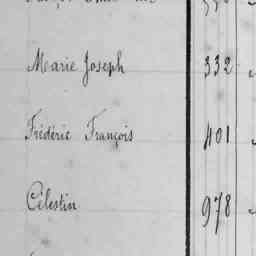 Marie Joseph 332
Frédéric François 401
Célestin 978